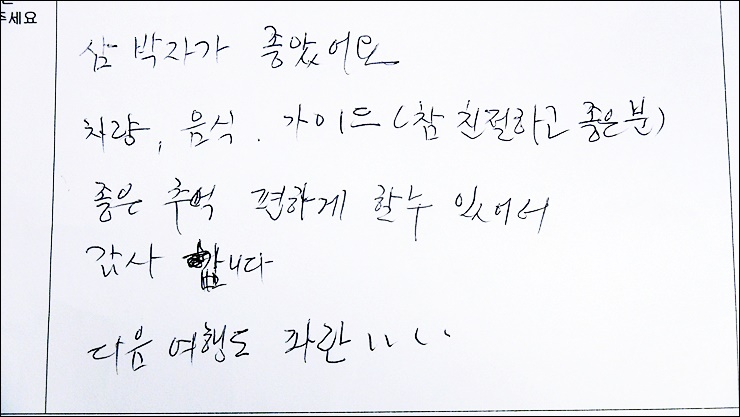 주세요
삼 박자가 좋았어요
차량, 음식. 가이드 (참 친절하고 좋은분)
좋은 추억 편하게 할수 있어서
감사 합니다
다음 여행도